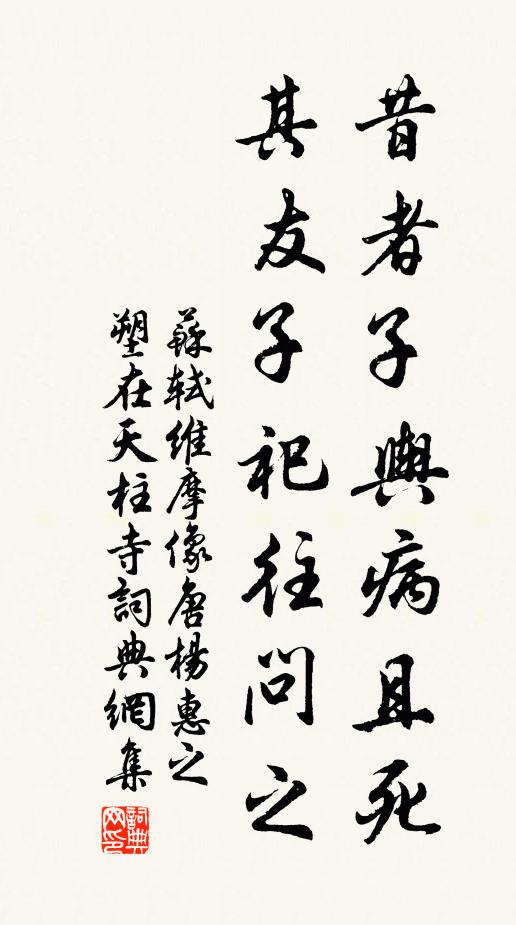 昔者子輿病且死
其友子祀往問之
蘇軾維摩像唐楊惠之
塑在天柱寺詞典網集
詞典
网印